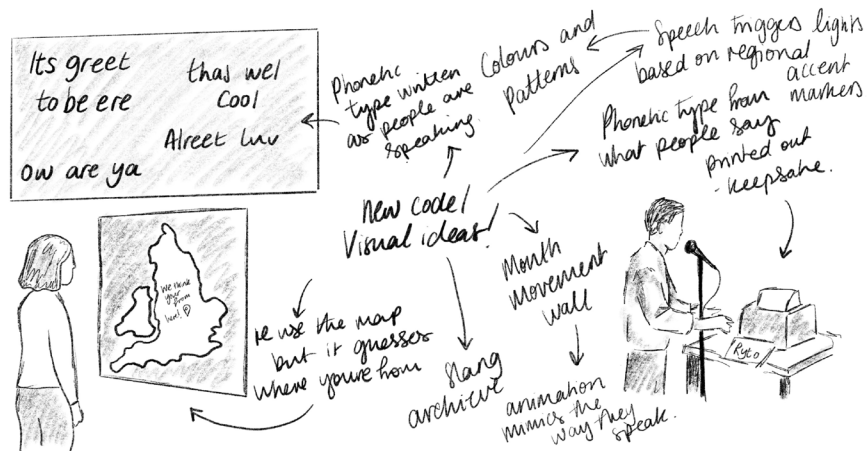 Its greet
to be ere
thas wel
cool
Alreet luv
ow are ya
Phonetic
type written
as people are
speaking.
Colours and
Patterns
Speech triggers lights
based on regional
accent
markers
Phonetic type from
what people say
printed out
- keepsake.
New code/
Visual ideas!
Mouth
movement
wall
animation
mimics the
way they
speak.
slang
archieve
re use the map
but it guesses
where you're from
We think
your from
here!